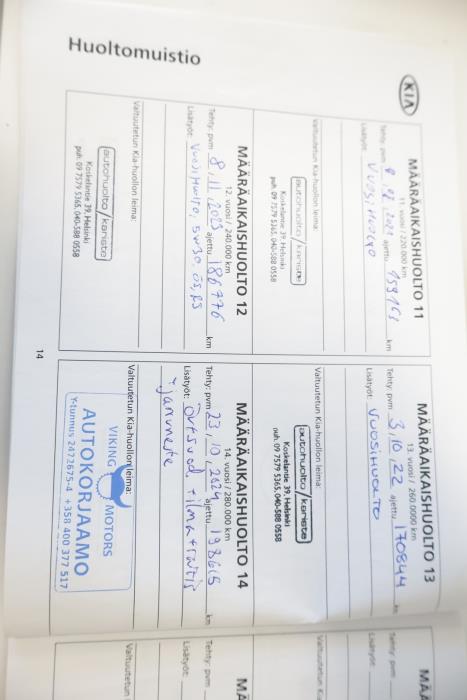 Huoltomuistio
KIA
MÄÄRÄAIKAISHUOLTO 11
11. vuosi / 220.000 km
Tehty: pvm 8 ajettu 159163 km
Lisätyöt: Vuosihuolto
Valtuutetun Kia-huollon leima:
autohuolto/kariste
Koskelantie 39, Helsinki
puh. 09 7579 5365, 040-588 0558
MÄÄRÄAIKAISHUOLTO 12
12. vuosi / 240.000 km
Tehty: pvm 8, 11, 2023 ajettu 186776 km
Lisätyöt: Vuosihuolto, 5w30, ös, rs
Valtuutetun Kia-huollon leima:
autohuolto/kariste
Koskelantie 39, Helsinki
puh. 09 7579 5365, 040-588 0558
MÄÄRÄAIKAISHUOLTO 13
13. vuosi / 260.0000 km
Tehty: pvm 3, 10, 22 ajettu 170844 km
Lisätyöt: Vuosihuolto
Valtuutetun Kia-huollon leima:
autohuolto/kariste
Koskelantie 39, Helsinki
puh. 09 7579 5365, 040-588 0558
MÄÄRÄAIKAISHUOLTO 14
14. vuosi / 280.000 km
Tehty: pvm 23, 10, 2024 ajettu 198615 km
Lisätyöt: + ilma +
+ jarruneste
Valtuutetun Kia-huollon leima:
VIKING MOTORS
AUTOKORJAAMO
Y-tunnus 2472675-4 +358 400 377 517
14
MÄÄ
Tehty: pvm
Lisätyöt:
Valtuutetun Kia
MÄ
Tehty: pvm
Lisätyöt:
Valtuutetun